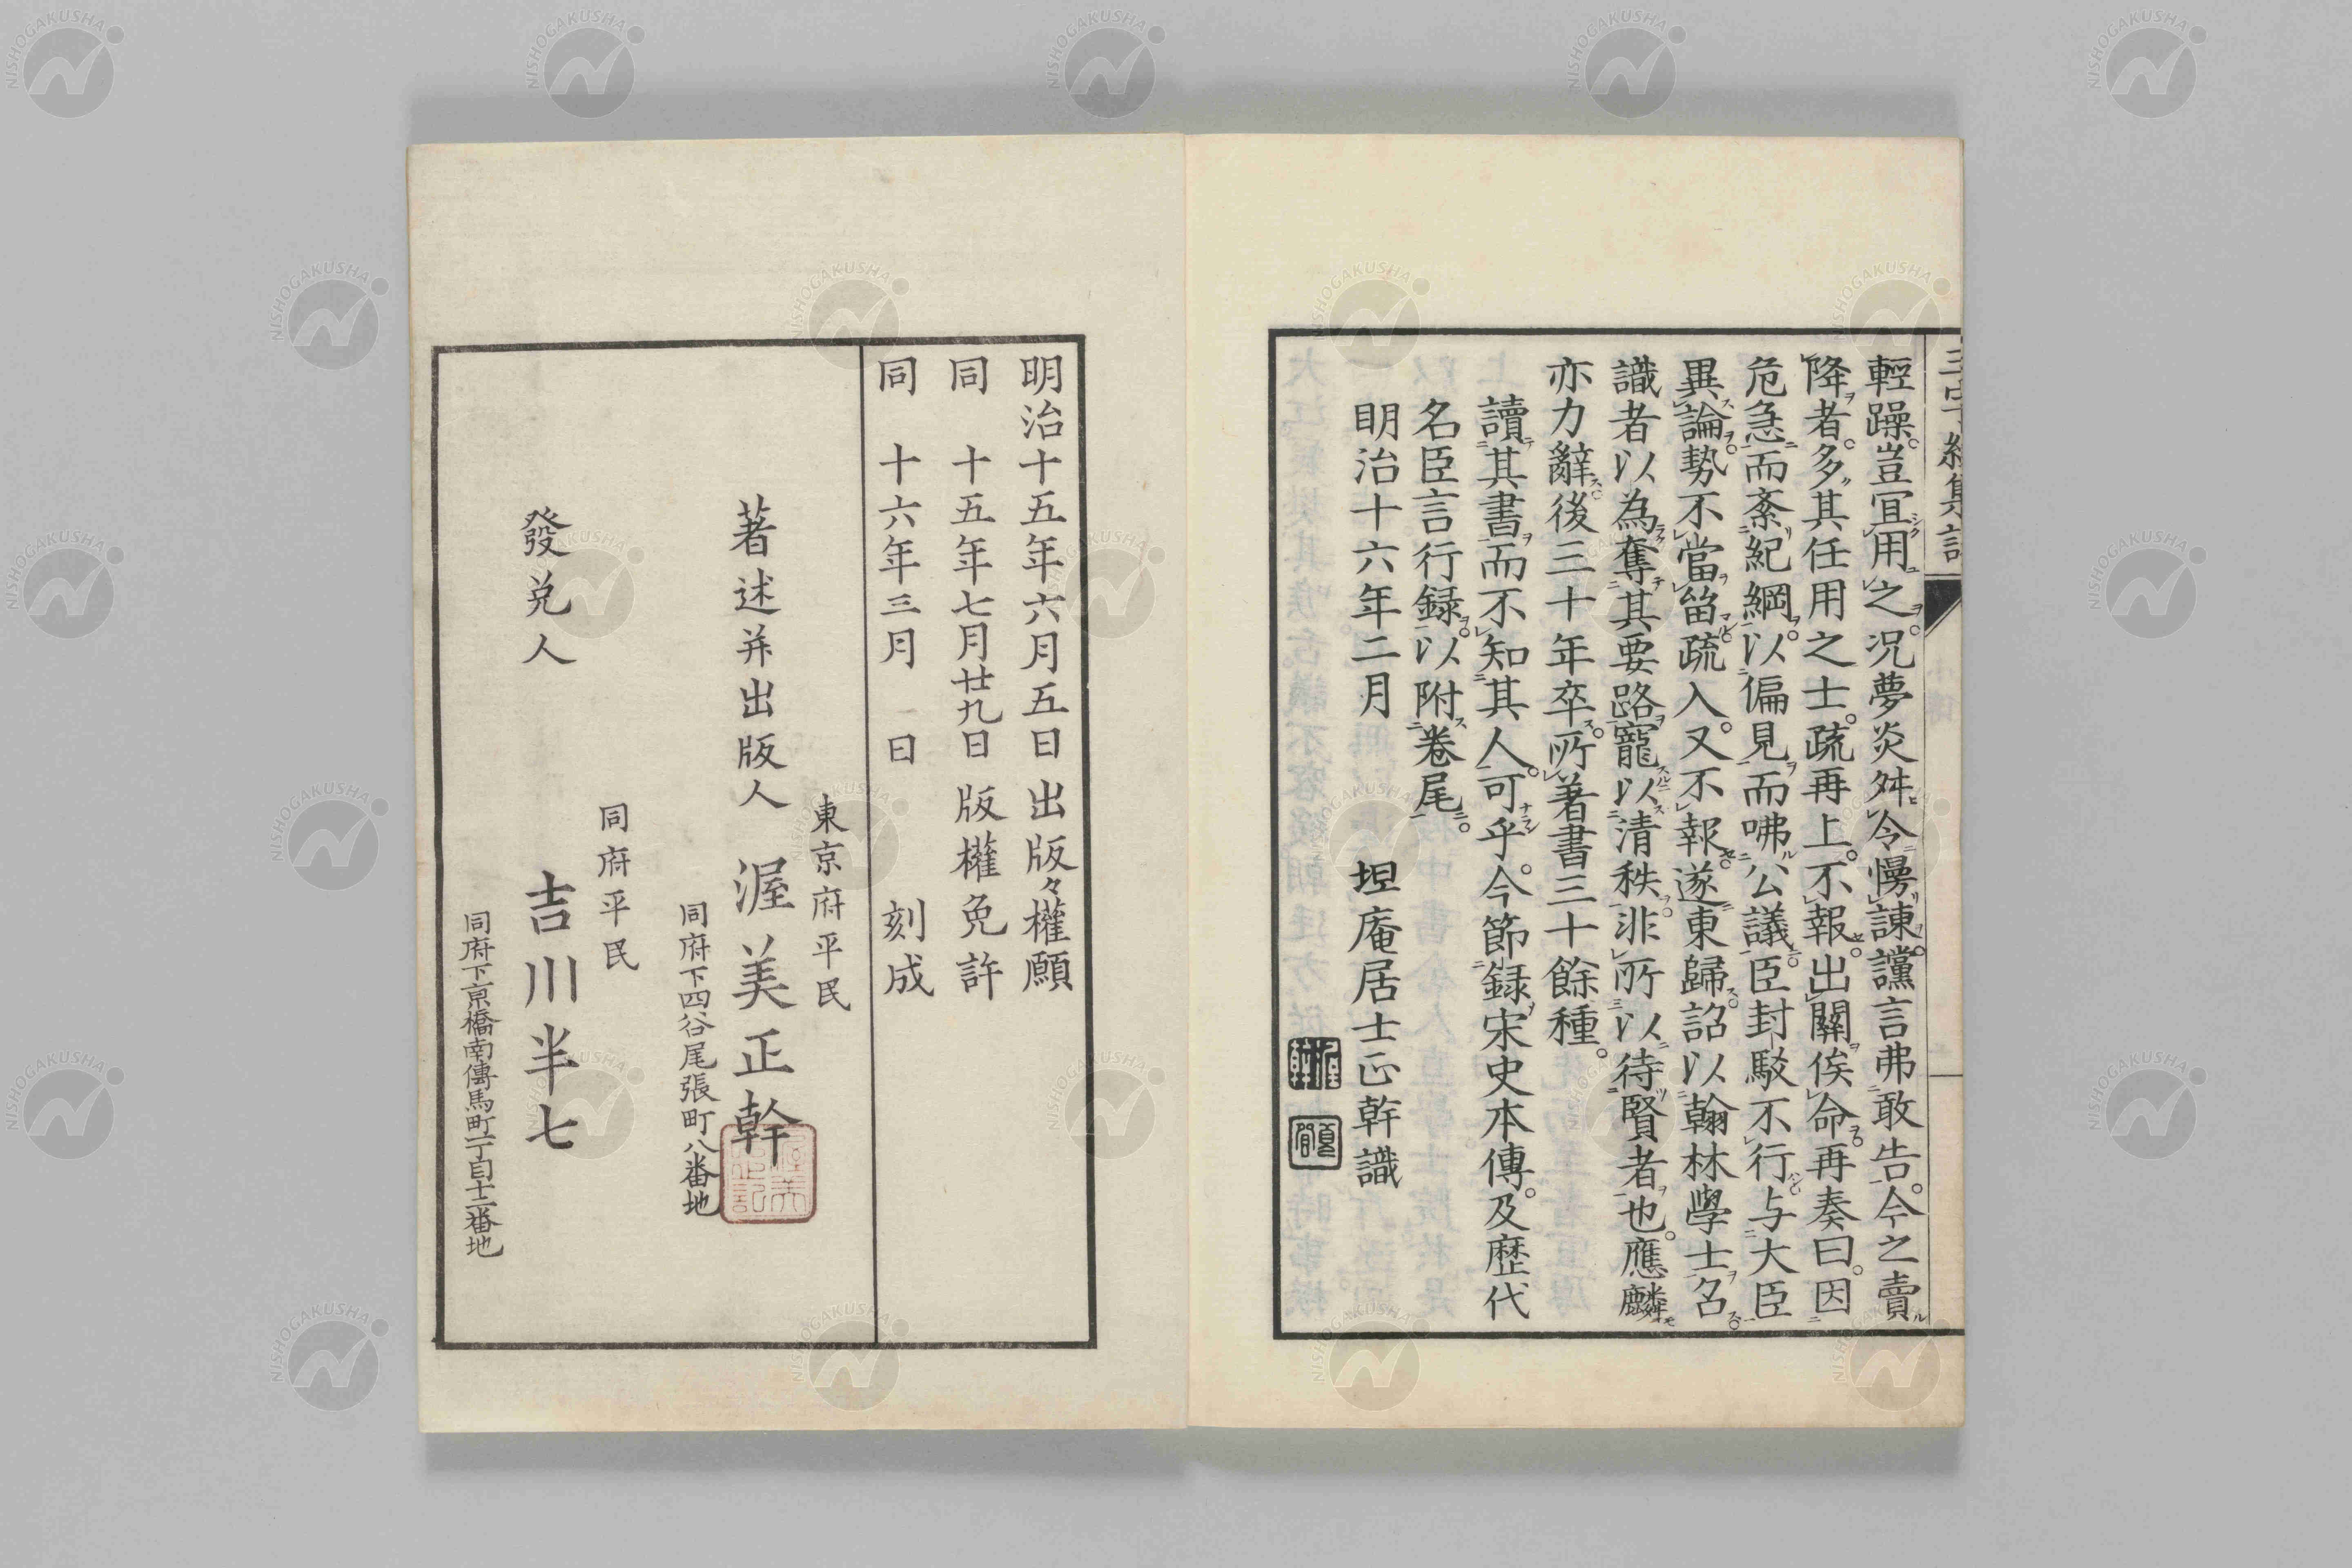 三字經集註
輕躁。豈宜用之。況夢炎舛令慢諫讜言弗敢告。今之賣
降者。多其任用之士。疏再上。不報。出關俟命。再奏曰。因
危急而紊紀綱。以偏見而咈公議。臣封駁不行。与大臣
異論。勢不當畱。疏入。又不報。遂東歸。詔以翰林學士召。
識者以為奪其要路寵以清秩。非所以待賢者也。應麟
亦力辭。後三十年卒。所著書三十餘種。
讀其書而不知其人。可乎。今節録宋史本傳。及歷代
名臣言行録。以附卷尾。
明治十六年二月　坦庵居士正幹識
明治十五年六月五日出版々權願
同　十五年七月廿九日版權免許
同　十六年三月　日　刻成
東京府平民
著述并出版人　渥美正幹
同府下四谷尾張町八番地
同府平民
發兌人　吉川半七
同府下京橋南傳馬町一丁目十二番地
NISHOGAKUSHA